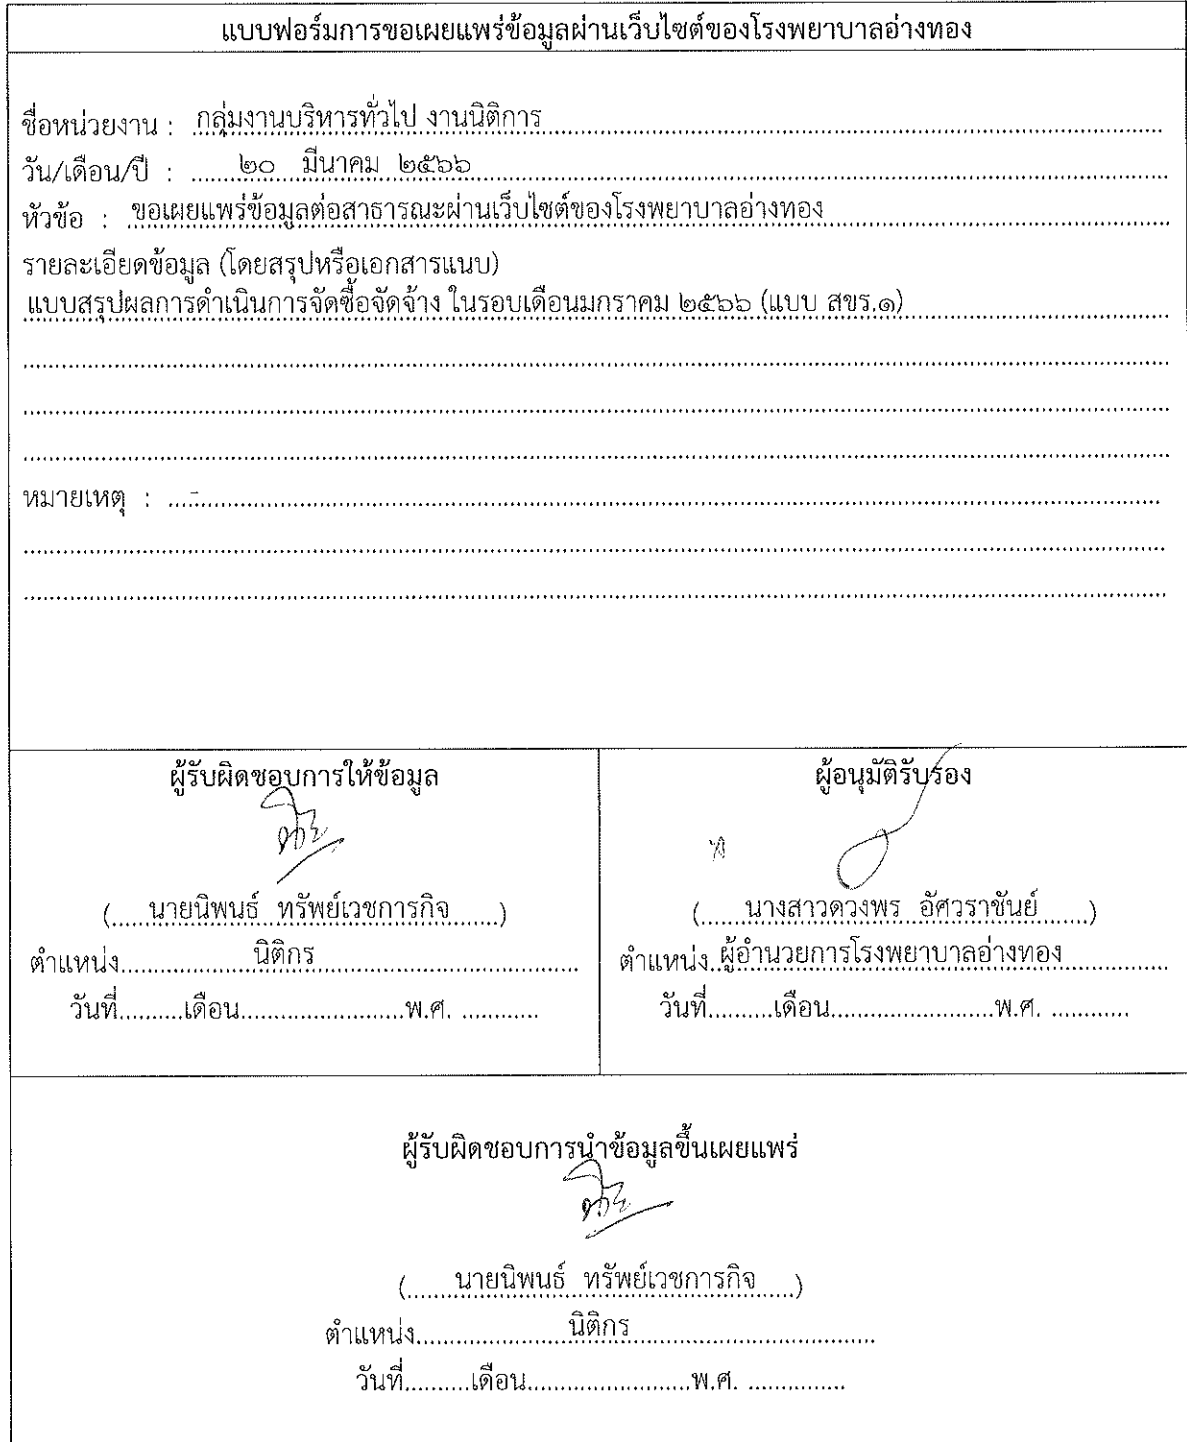 แบบฟอร์มการขอเผยแพร่ข้อมูลผ่านเว็บไซต์ของโรงพยาบาลอ่างทอง
ชื่อหน่วยงาน : กลุ่มงานบริหารทั่วไป งานนิติการ
วัน/เดือน/ปี : ๒๐ มีนาคม ๒๕๖๖
หัวข้อ : ขอเผยแพร่ข้อมูลต่อสาธารณะผ่านเว็บไซต์ของโรงพยาบาลอ่างทอง
รายละเอียดข้อมูล (โดยสรุปหรือเอกสารแนบ)
แบบสรุปผลการดำเนินการจัดซื้อจัดจ้าง ในรอบเดือนมกราคม ๒๕๖๖ (แบบ สขร.๑)
หมายเหตุ : -
ผู้รับผิดชอบการให้ข้อมูล
(นายนิพนธ์ ทรัพย์เวชการกิจ)
ตำแหน่ง นิติกร
วันที่..........เดือน.........................พ.ศ. ............
ผู้อนุมัติรับรอง
(นางสาวดวงพร อัศวราชันย์)
ตำแหน่ง ผู้อำนวยการโรงพยาบาลอ่างทอง
วันที่..........เดือน.........................พ.ศ. ............
ผู้รับผิดชอบการนำข้อมูลขึ้นเผยแพร่
(นายนิพนธ์ ทรัพย์เวชการกิจ)
ตำแหน่ง นิติกร
วันที่.........เดือน.........................พ.ศ. ...............